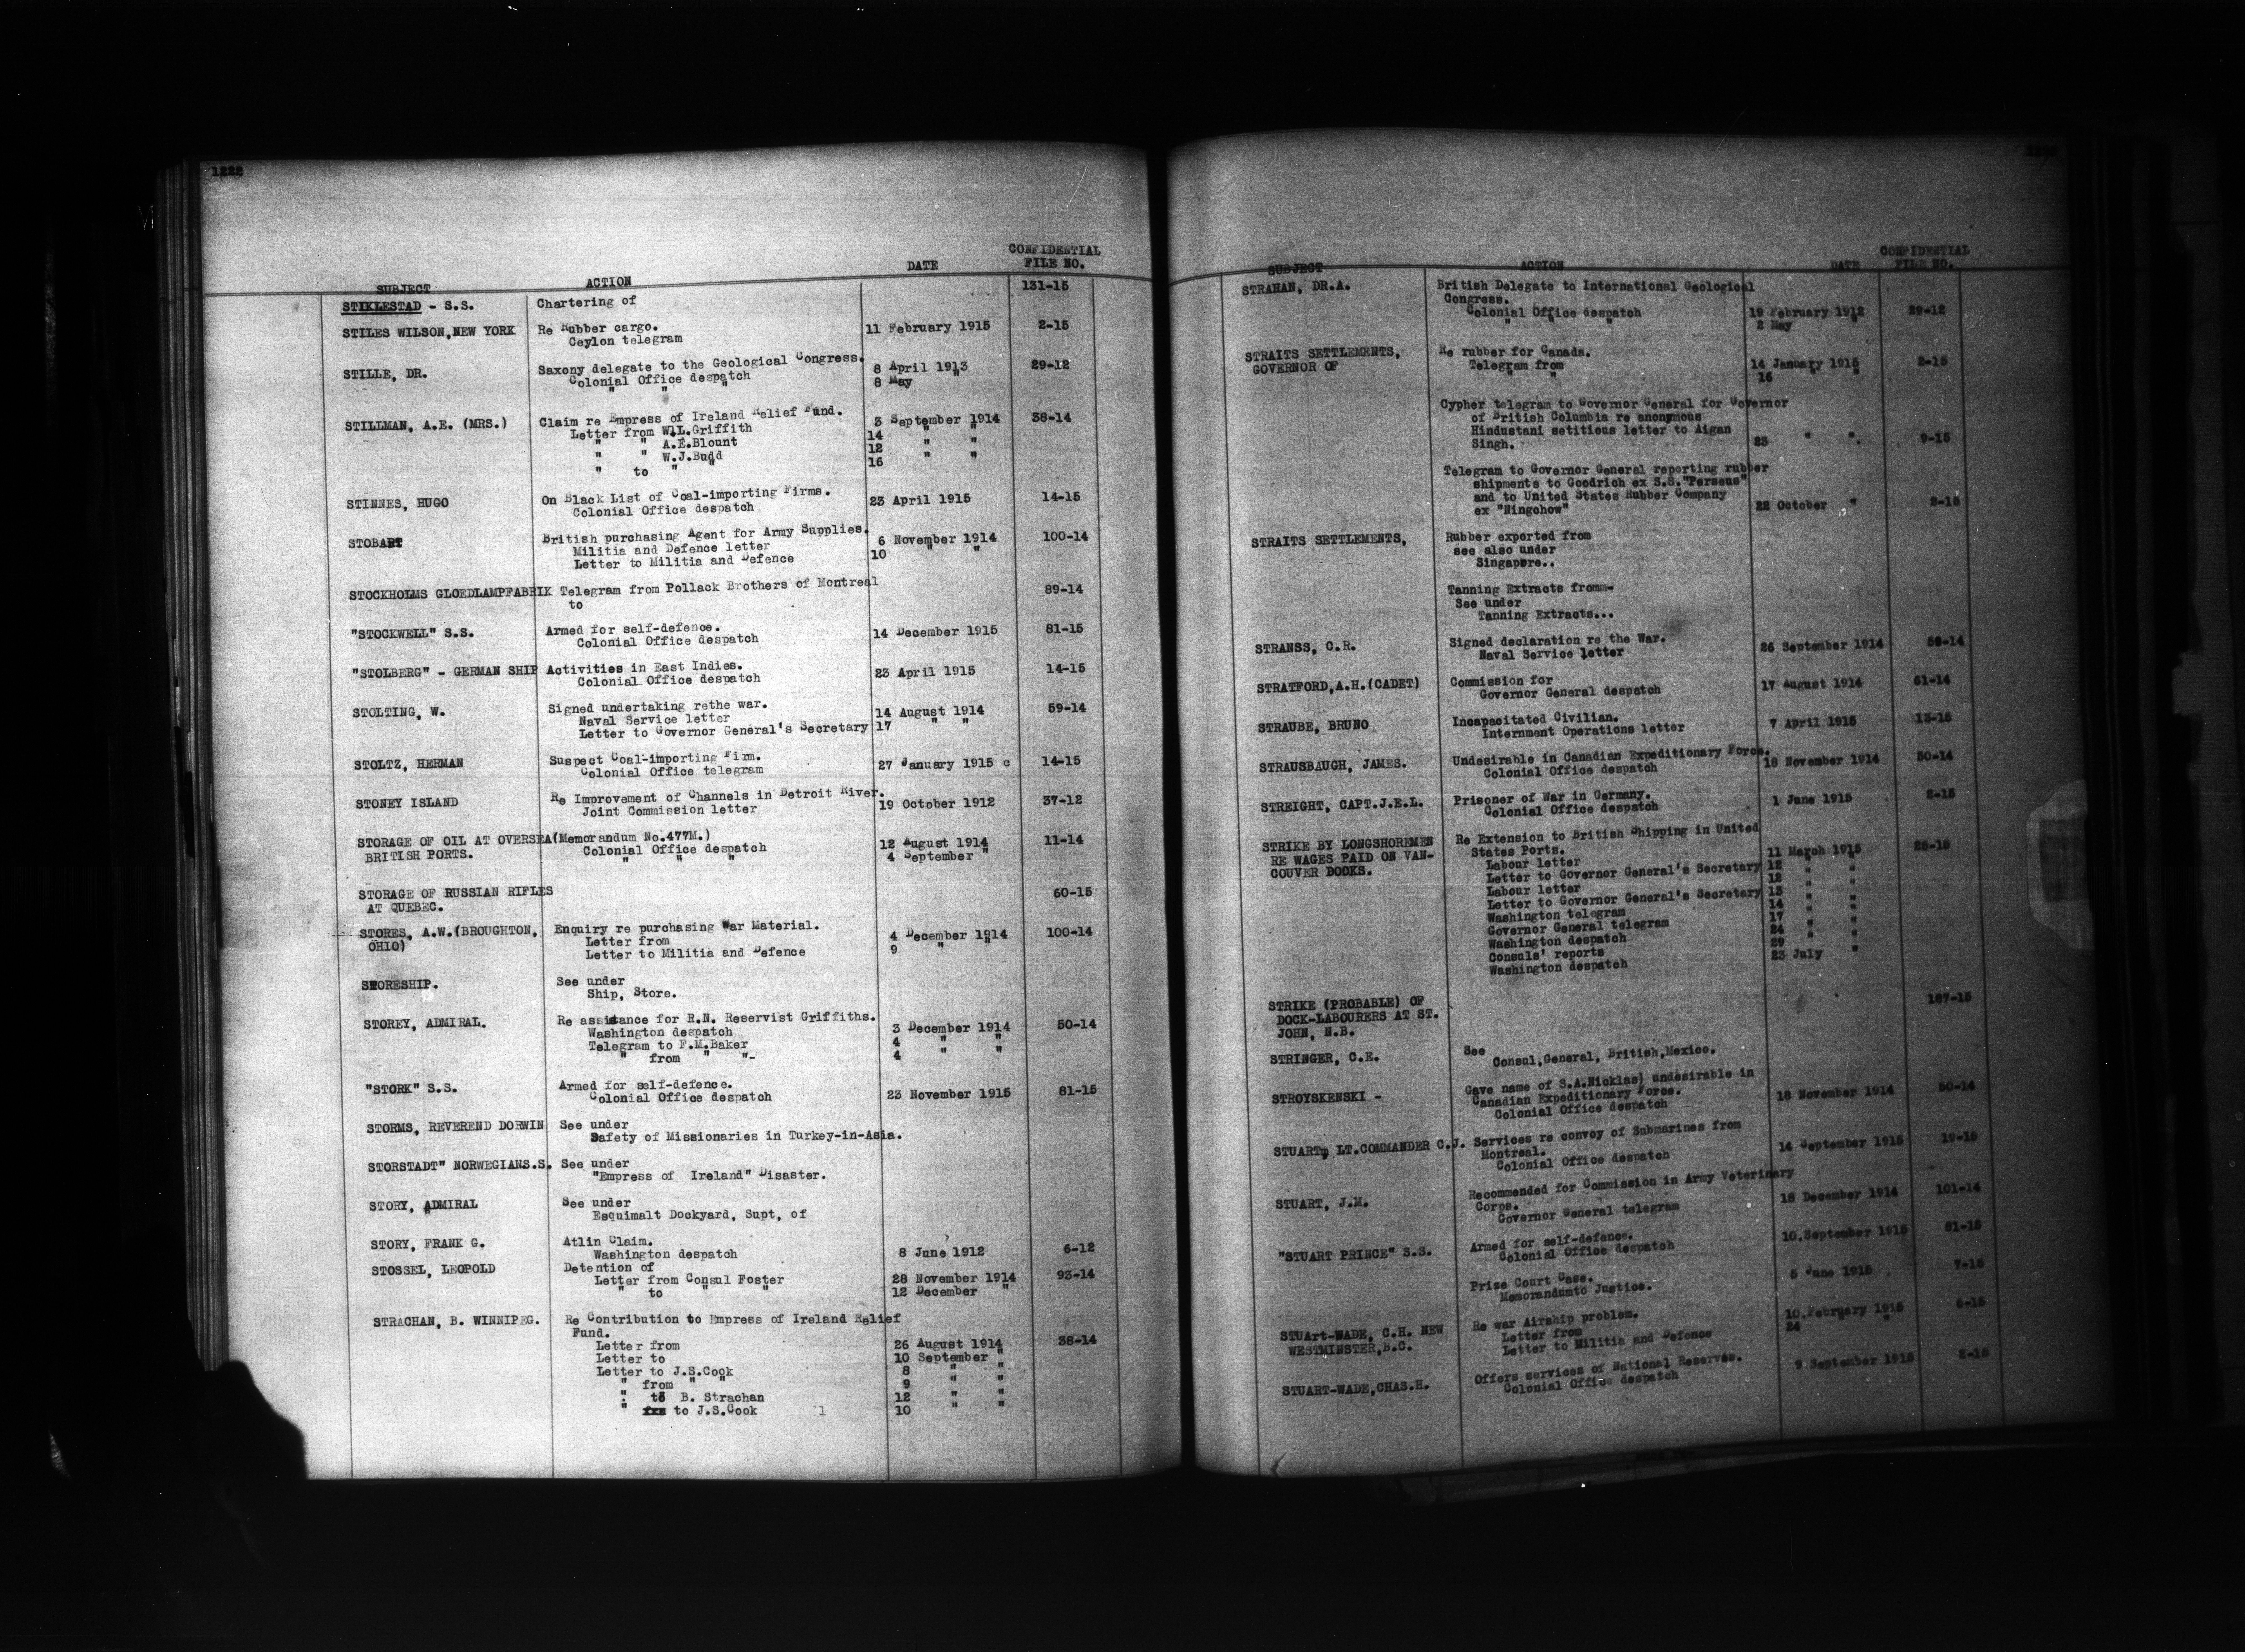 1222
CONFIDENTIAL
SUBJECT ACTION DATE FILE NO.
STIKLESTAD - S.S. Chartering of 131-15
STILES WILSON,NEW YORK Re Rubber cargo. 11 February 1915 2-15
Ceylon telegram
STILLE, DR. Saxony delegate to the Geological Congress. 8 April 1913 29-12
Colonial Office despatch 8 May "
" " "
STILLMAN, A.E. (MRS.) Claim re Empress of Ireland Relief Fund. 3 September 1914 38-14
Letter from W.L.Griffith 14 " "
" " A.E.Blount 12 " "
" " W.J.Budd 16 " "
" to " "
STINNES, HUGO On Black List of Coal-importing Firms. 23 April 1915 14-15
Colonial Office despatch
STOBART British purchasing Agent for Army Supplies. 6 November 1914 100-14
Militia and Defence letter 10 " "
Letter to Militia and Defence
STOCKHOLMS GLOEDLAMPFABRIK Telegram from Pollack Brothers of Montreal 89-14
to
"STOCKWELL" S.S. Armed for self-defence. 14 December 1915 81-15
Colonial Office despatch
"STOLBERG" - GERMAN SHIP Activities in East Indies. 23 April 1915 14-15
Colonial Office despatch
STOLTING, W. Signed undertaking rethe war. 14 August 1914 59-14
Naval Service letter 17 " "
Letter to Governor General's Secretary
STOLTZ, HERMAN Suspect Coal-importing Firm. 27 January 1915 c 14-15
Colonial Office telegram
STONEY ISLAND Re Improvement of Channels in Detroit River. 19 October 1912 37-12
Joint Commission letter
STORAGE OF OIL AT OVERSEA (Memorandum No.477M.) 12 August 1914 11-14
BRITISH PORTS. Colonial Office despatch 4 September "
" " "
STORAGE OF RUSSIAN RIFLES 60-15
AT QUEBEC.
STORES, A.W.(BROUGHTON, Enquiry re purchasing War Material. 4 December 1914 100-14
OHIO) Letter from 9 " "
Letter to Militia and Defence
STORESHIP. See under
Ship, Store.
STOREY, ADMIRAL. Re assistance for R.N. Reservist Griffiths. 3 December 1914 50-14
Washington despatch 4 " "
Telegram to F.M.Baker 4 " "
" from " "-
"STORK" S.S. Armed for self-defence. 23 November 1915 81-15
Colonial Office despatch
STORMS, REVEREND DORWIN See under
Safety of Missionaries in Turkey-in-Asia.
STORSTADT" NORWEGIANS.S. See under
"Empress of Ireland" Disaster.
STORY, ADMIRAL See under
Esquimalt Dockyard, Supt, of
STORY, FRANK G. Atlin Claim. 8 June 1912 6-12
Washington despatch
STOSSEL, LEOPOLD Detention of 28 November 1914 93-14
Letter from Consul Foster 12 December "
" to " "
STRACHAN, B. WINNIPEG. Re Contribution to Empress of Ireland Relief
Fund.
Letter from 26 August 1914 38-14
Letter to 10 September "
Letter to J.S.Cook 8 " "
" from " " 9 " "
" to B. Strachan 12 " "
" to J.S.Cook 10 " "
CONFIDENTIAL
SUBJECT ACTION DATE FILE NO.
STRAHAN, DR.A. British Delegate to International Geological
Congress.
Colonial Office despatch 19 February 1912 29-12
" " " 2 May "
STRAITS SETTLEMENTS, Re rubber for Canada.
GOVERNOR OF Telegram from 14 January 1915 2-15
" " 16 " "
Cypher telegram to Governor General for Governor
of British Columbia re anonymous
Hindustani setitious letter to Aigan
Singh. 23 " ". 9-15
Telegram to Governor General reporting rubber
shipments to Goodrich ex S.S."Perseus"
and to United States Rubber Company
ex "Ningchow" 22 October " 2-15
STRAITS SETTLEMENTS, Rubber exported from
see also under
Singapore..
Tanning Extracts from--
See under
Tanning Extracts...
STRANSS, C.R. Signed declaration re the War. 26 September 1914 59-14
Naval Service letter
STRATFORD,A.H.(CADET) Commission for 17 August 1914 61-14
Governor General despatch
STRAUBE, BRUNO Incapacitated Civilian. 7 April 1915 13-15
Internment Operations letter
STRAUSBAUGH, JAMES. Undesirable in Canadian Expeditionary Force. 18 November 1914 50-14
Colonial Office despatch
STREIGHT, CAPT.J.E.L. Prisoner of War in Germany. 1 June 1915 2-15
Colonial Office despatch
STRIKE BY LONGSHOREMEN Re Extension to British Shipping in United
RE WAGES PAID ON VAN- States Ports. 11 March 1915 25-15
COUVER DOCKS. Labour letter 12 " "
Letter to Governor General's Secretary 12 " "
Labour letter 13 " "
Letter to Governor General's Secretary 14 " "
Washington telegram 17 " "
Governor General telegram 24 " "
Washington despatch 29 " "
Consuls' reports 23 July "
Washington despatch
STRIKE (PROBABLE) OF 167-15
DOCK-LABOURERS AT ST.
JOHN, N.B.
STRINGER, C.E. See
Consul,General, British,Mexico.
STROYSKENSKI - Gave name of S.A.Nicklas) undesirable in
Canadian Expeditionary Force. 18 November 1914 50-14
Colonial Office despatch
STUART, LT.COMMANDER C.J. Services re convoy of Submarines from
Montreal. 14 September 1915 19-15
Colonial Office despatch
STUART, J.M. Recommended for Commission in Army Veterinary
Corps. 18 December 1914 101-14
Governor General telegram
"STUART PRINCE" S.S. Armed for self-defence. 10.September 1915 81-15
Colonial Office despatch
Prize Court Case. 5 June 1915 7-15
Memorandumto Justice.
STUArt-WADE, C.H. NEW Re war Airship problem. 10.February 1915 6-15
WESTMINSTER,B.C. Letter from 24 "
Letter to Militia and Defence
STUART-WADE,CHAS.H. Offers services of National Reserves. 9 September 1915 2-15
Colonial Office despatch